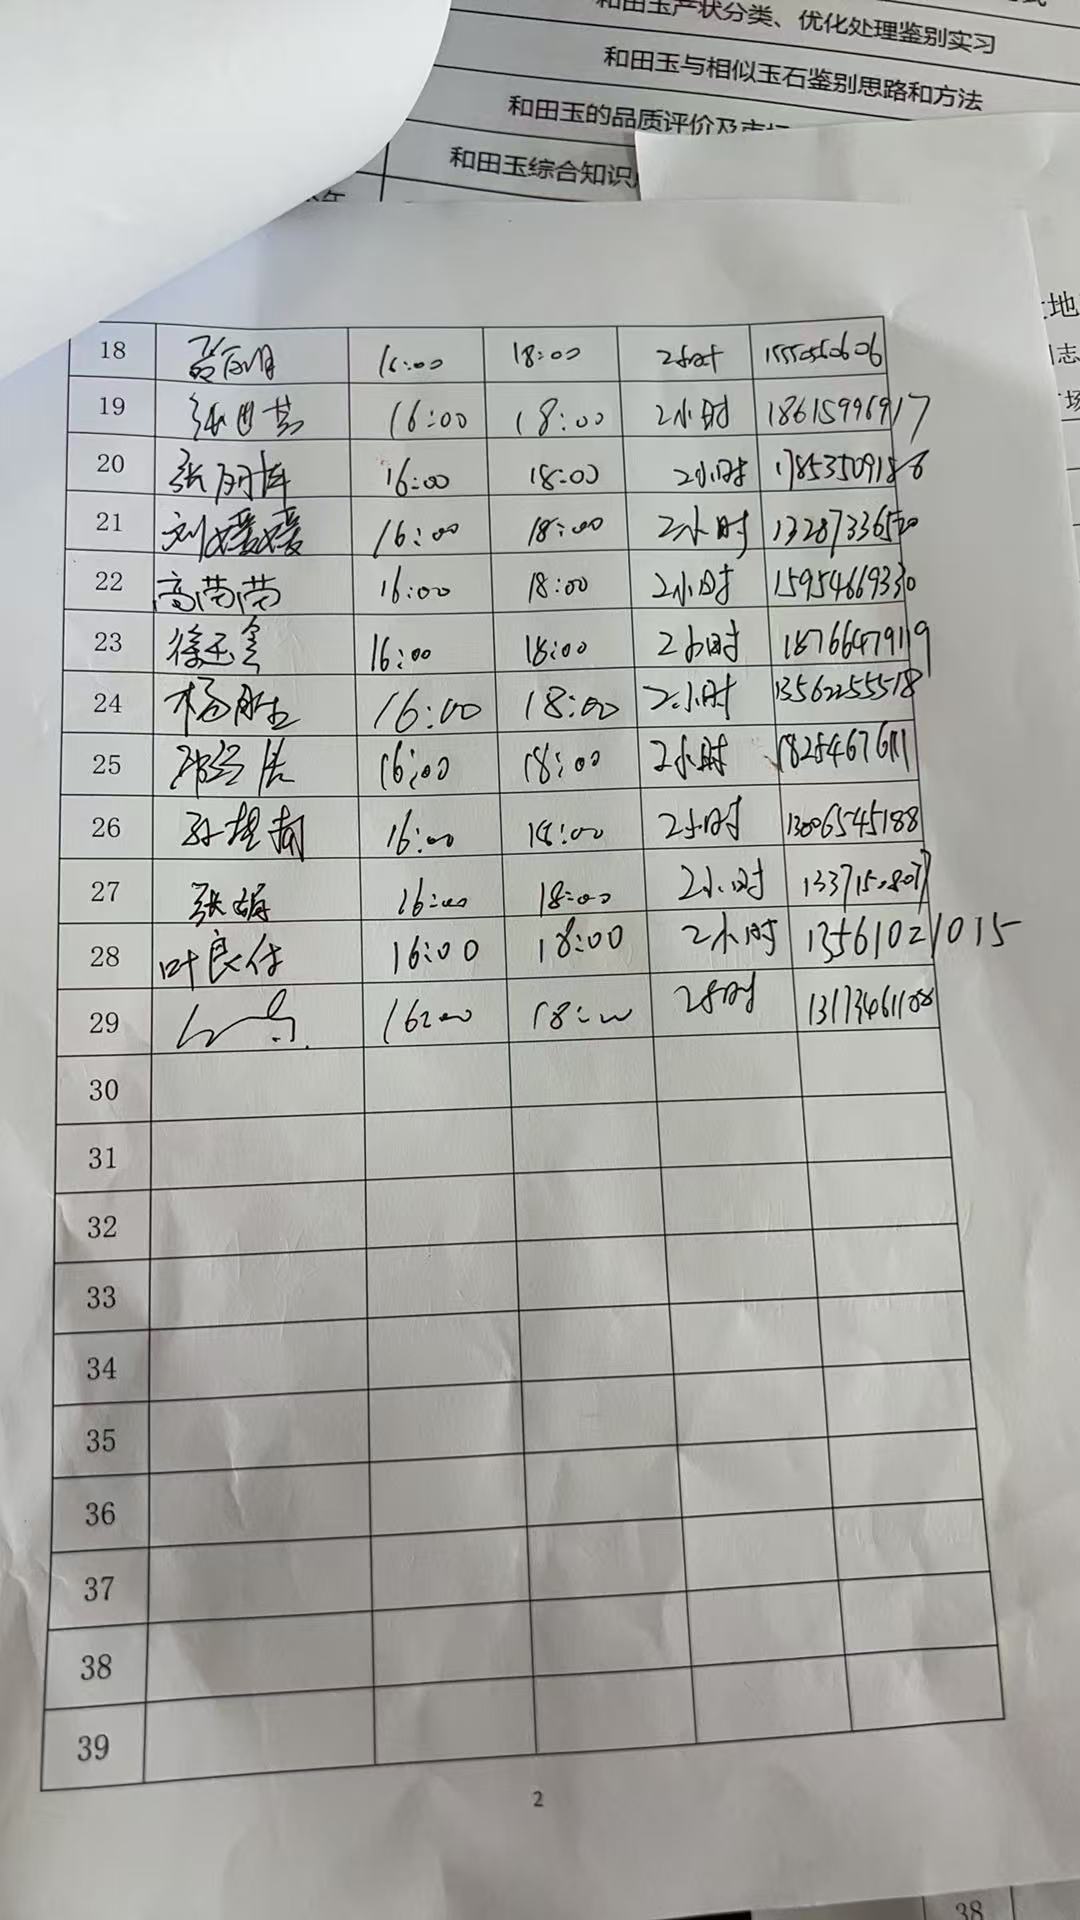 和田玉产状分类、优化处理鉴别实习
和田玉与相似玉石鉴别思路和方法
和田玉的品质评价及市场
和田玉综合知识
地
志
场
18 16:00 18:00 2小时 15550560606
19 16:00 18:00 2小时 18615996917
20 张 16:00 18:00 2小时 17853509186
21 刘媛媛 16:00 18:00 2小时 13287336520
22 高荣荣 16:00 18:00 2小时 15954669330
23 徐玉金 16:00 18:00 2小时 18766479119
24 杨胜 16:00 18:00 2小时 13562255518
25 16:00 18:00 2小时 18254676111
26 孙 16:00 18:00 2小时 13006545188
27 张娟 16:00 18:00 2小时 13371508077
28 叶良仕 16:00 18:00 2小时 13561021015
29 16:00 18:00 2小时
30
31
32
33
34
35
36
37
38
39
2
38